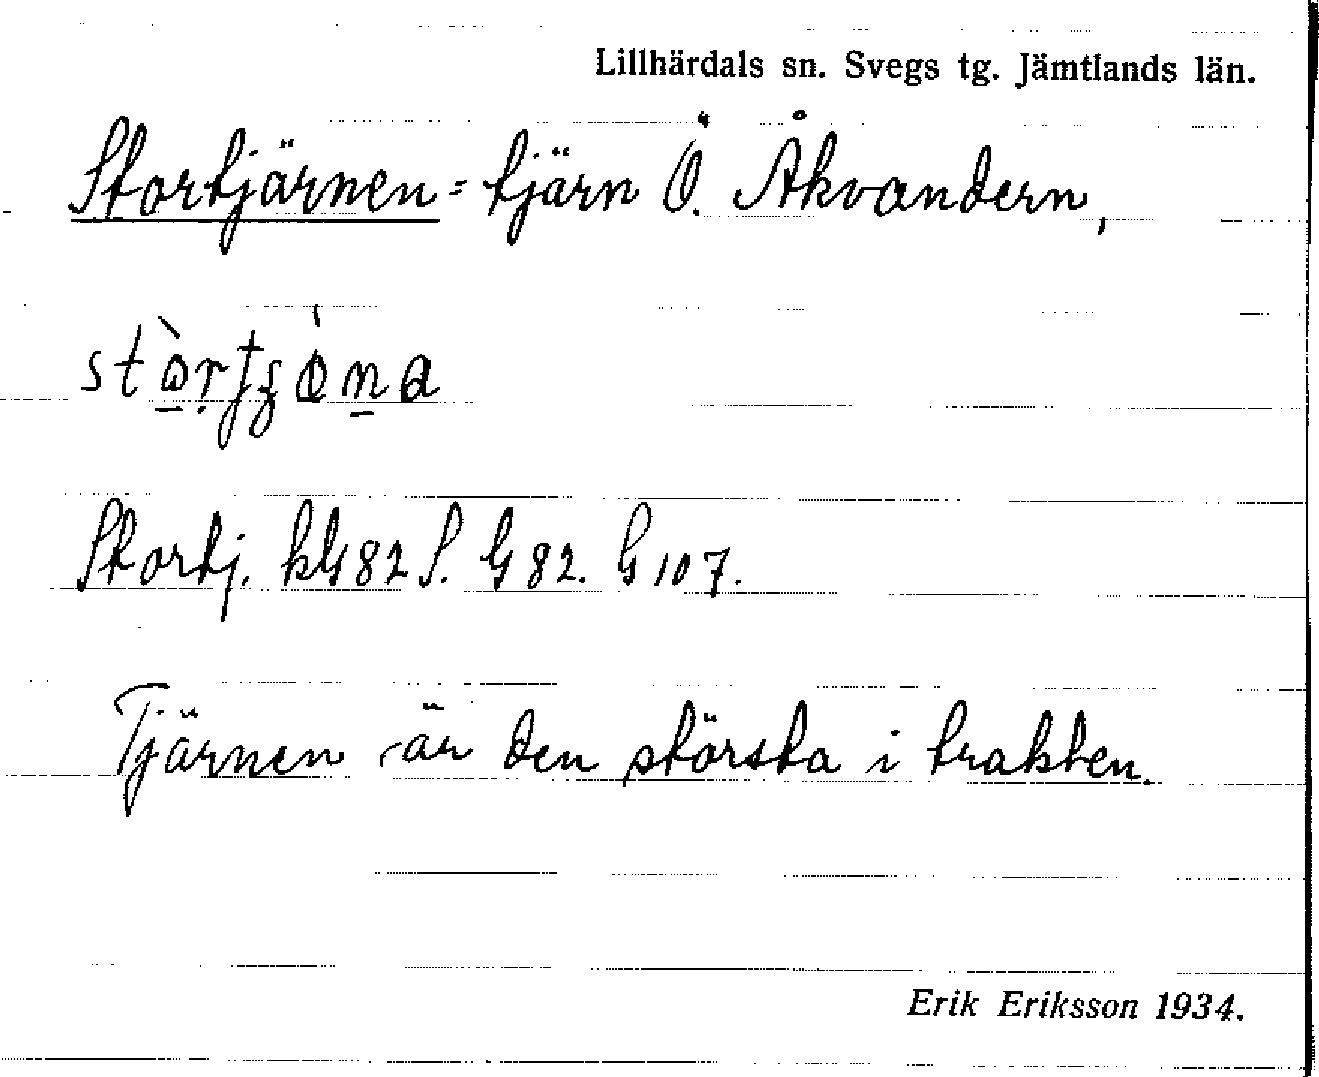 Lillhärdals sn. Svegs tg. Jämtlands län.
Stortjärnen = tjärn Ö. Åkvandern,
Stortj. kG82 S. G 82. G 107.
Tjärnen är den största i trakten.
Erik Eriksson 1934.